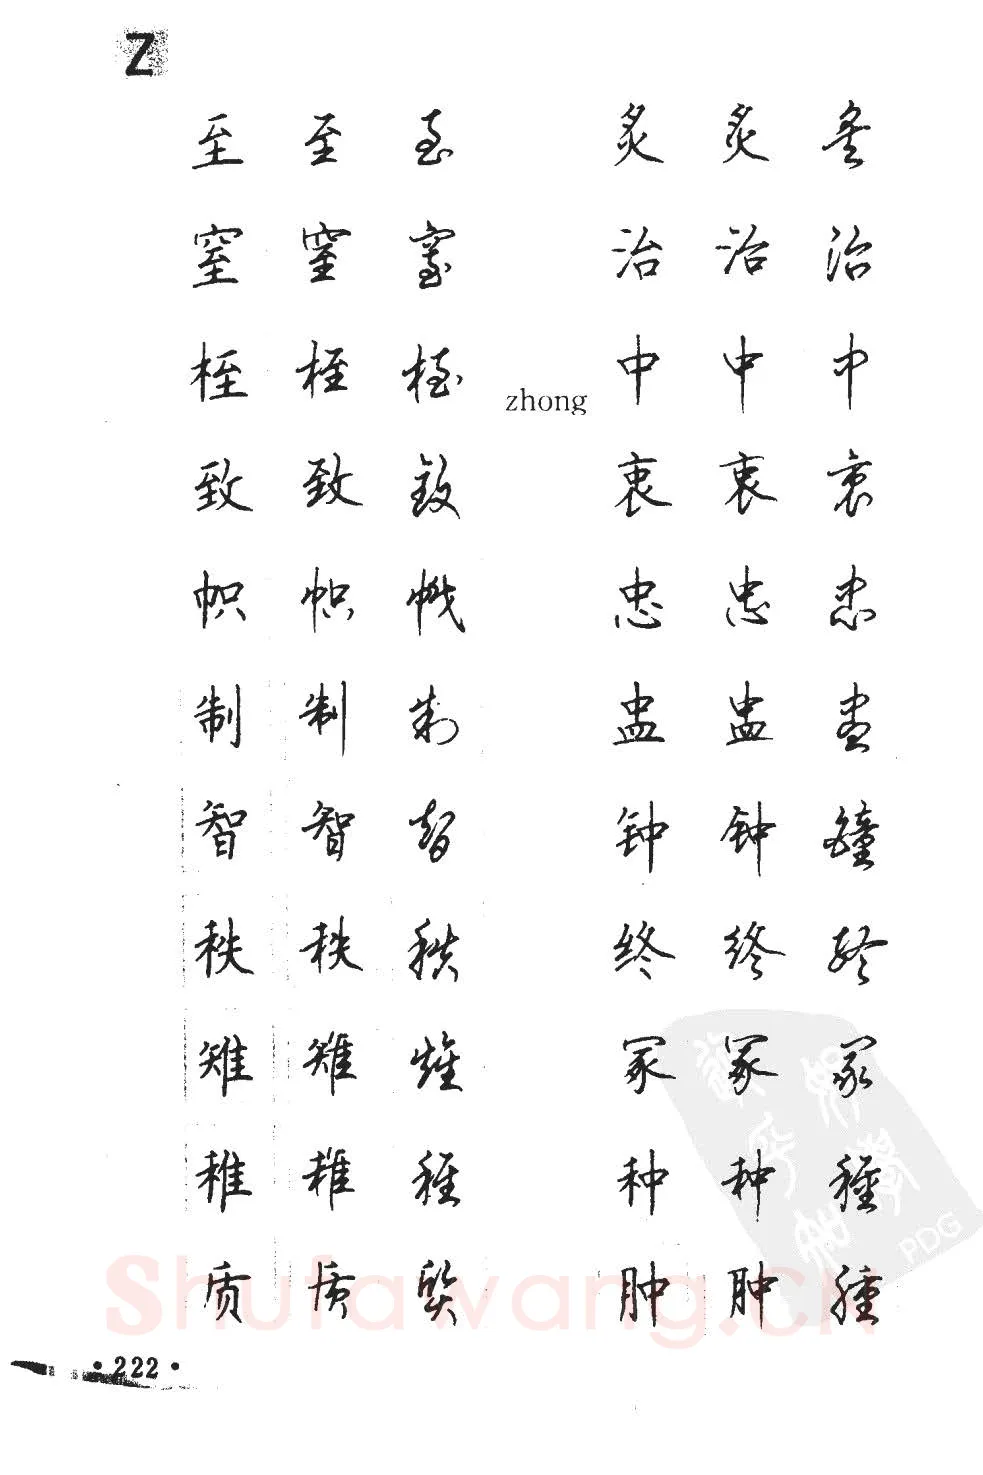 Z
至 至 至 炙 炙 炙
窒 窒 窒 治 治 治
桎 桎 桎 zhong 中 中 中
致 致 致 衷 衷 衷
帜 帜 帜 忠 忠 忠
制 制 制 盅 盅 盅
智 智 智 钟 钟 鐘
秩 秩 秩 终 终 终
雉 雉 雉 冢 冢 冢
稚 稚 稚 种 种 種
质 质 質 肿 肿 腫
Shufawang.CN
PDG
·222·